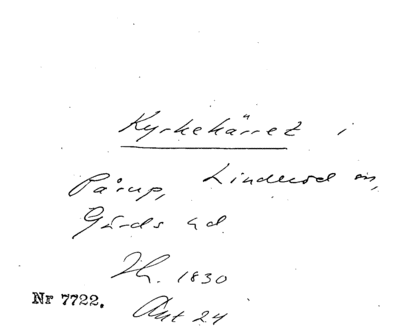 Kyrkekärret i
Pårup, Linderöd sn,
Gärds hd.
Th. 1830
Nr 7722.
Ant 24